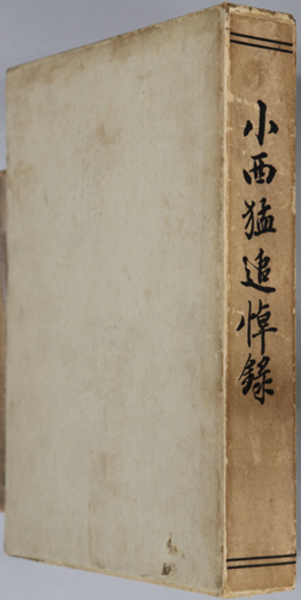 小西猛追悼錄